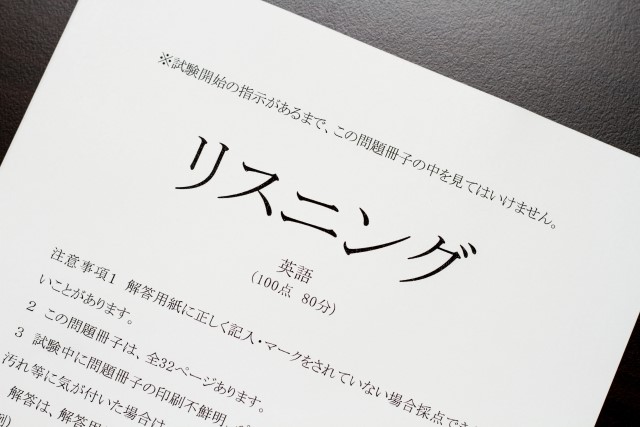 ※試験開始の指示があるまで、この問題冊子の中を見てはいけません。
リスニング
英語
(100点 80分)
注意事項1 解答用紙に正しく記入・マークをされていない場合採点でき
いことがあります。
2 この問題冊子は、全32ページあります。
3 試験中に問題冊子の印刷不鮮明、
汚れ等に気が付いた場合は
解答は、解答用
例)